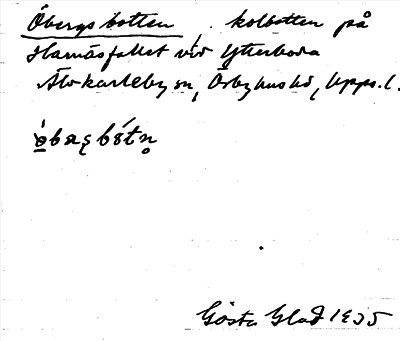 Öbergsbotten, kolbotten på
Harnäsfallet vid Ytterboda
Älvkarleby sn, Örbyhus hd, Upps. l.
Gösta Glad 1935